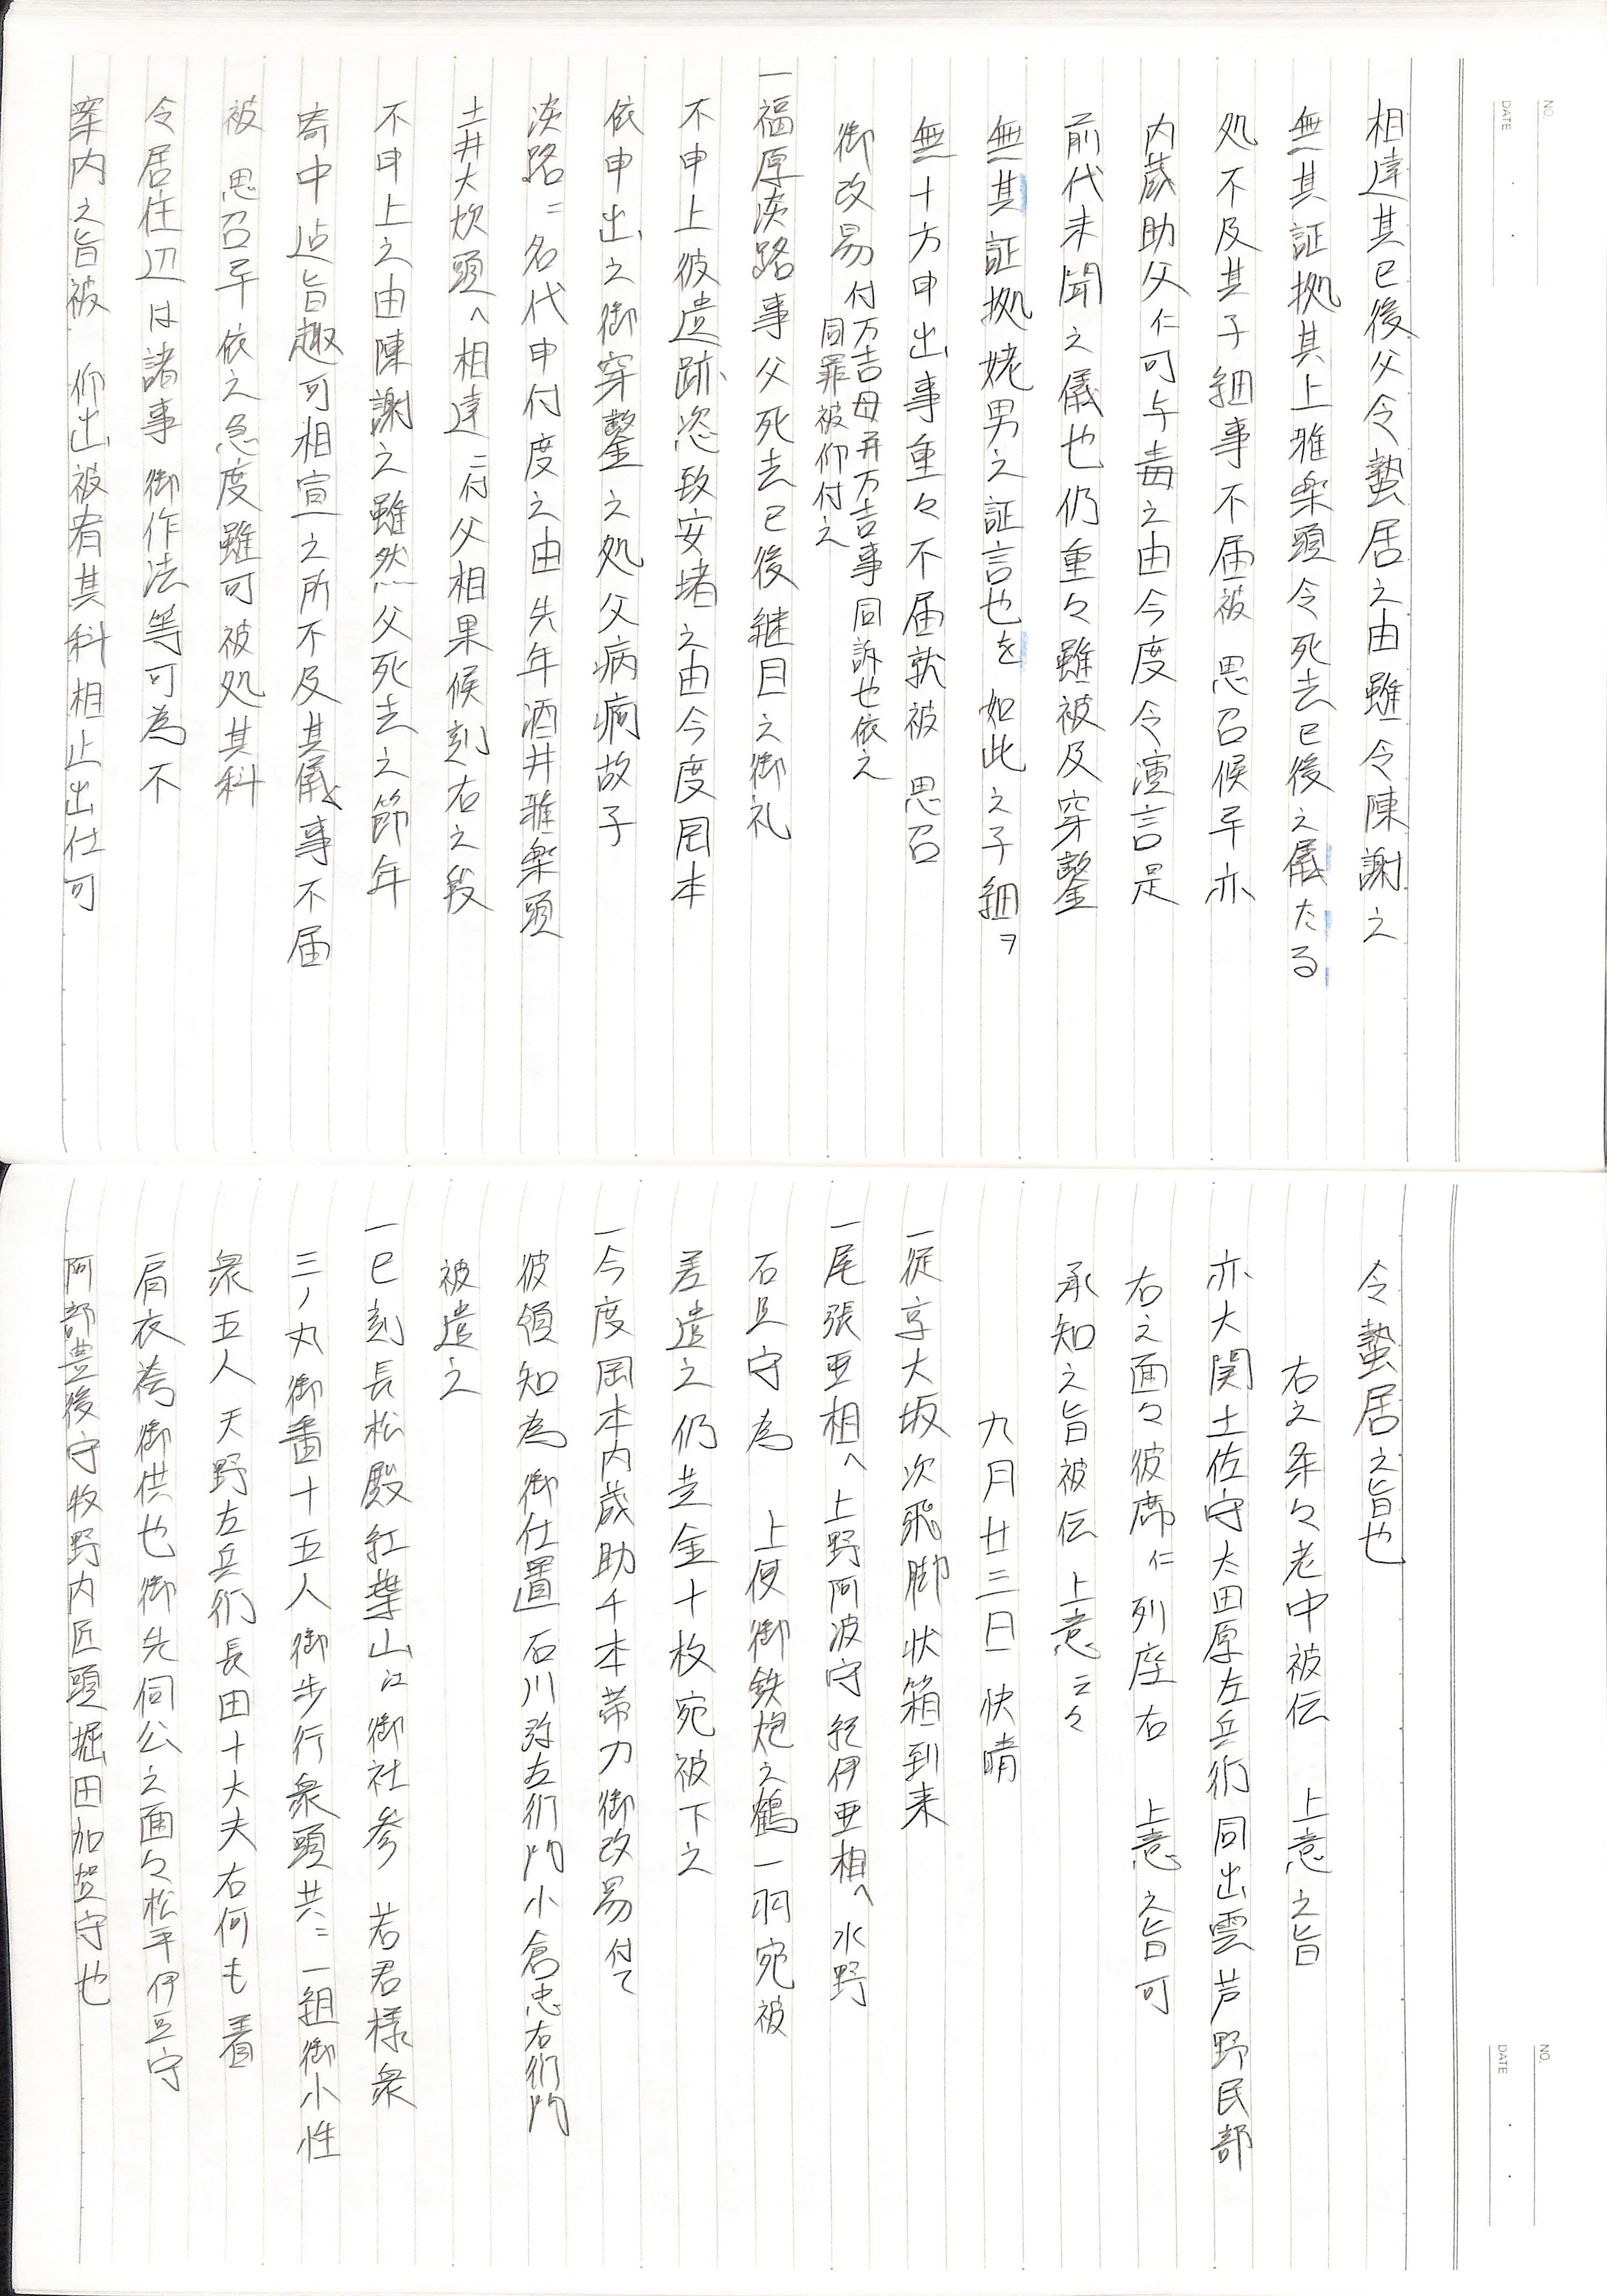 NO.
DATE
相達其已後父令蟄居之由雖令陳謝之
無其証拠其上雅楽頭令死去已後之儀たる
処不及其子細事不届被 思召候乎亦
内蔵助父仁可与毒之由今度令演言是
前代未聞之儀也仍重々雖被及穿鑿
無其証拠姥男之証言也を如此之子細ヲ
無十方申出事重々不届就被 思召
御改易付万吉母并万吉事同訴也依之
同罪被仰付之
一福原淡路事父死去已後継目之御礼
不申上彼遺跡恣致安堵之由今度岡本
依申出之御穿鑿之処父病痾故子
淡路ニ名代申付度之由先年酒井雅楽頭
土井大炊頭へ相達ニ付父相果候刻右之段
不申上之由陳謝之雖然父死去之節年
寄中迠旨趣可相宣之所不及其儀事不届
被 思召乎依之急度雖可被処其科
令居住辺は諸事御作法等可為不
案内之旨被 仰出被宥其科相止出仕可
NO.
DATE
令蟄居之旨也
右之条々老中被伝 上意之旨
亦大関土佐守大田原左兵衛同出雲芦野民部
右之面々彼席仁列座右 上意之旨可
承知之旨被伝 上意云々
九月廿三日 快晴
一従享大坂次飛脚状箱到来
一尾張亜相へ上野阿波守紀伊亜相へ水野
石見守為 上使御鉄炮之鶴一羽宛被
差遣之仍芝金十枚宛被下之
一今度岡本内蔵助千本帯刀御改易付て
彼領知為御仕置石川弥左衛門小倉忠右衛門
被遣之
一巳刻長松殿紅葉山江御社参 若君様衆
三ノ丸御番十五人御歩行衆頭共ニ一組御小性
衆五人天野左兵衛長田十大夫右何も着
肩衣袴御供也御先伺公之面々松平伊豆守
阿部豊後守牧野内匠頭堀田加賀守也